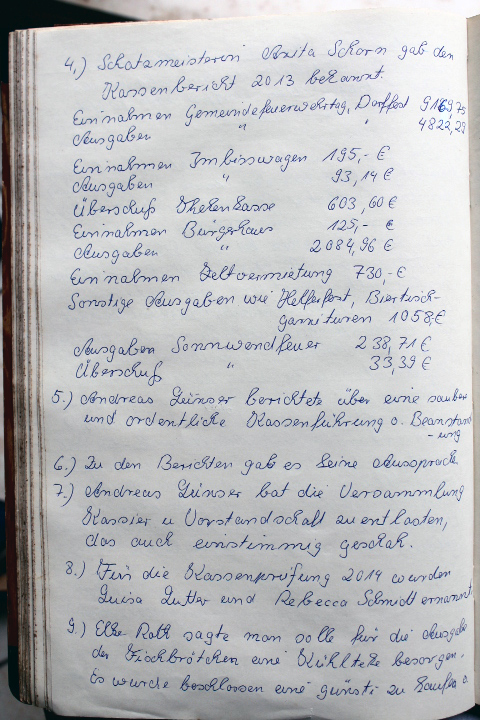 4.) Schatzmeisterin Anita Schorn gab den
Kassenbericht 2013 bekannt.
Einnahmen Gemeindefeuerwehrtag, Dorffest 9169,75
Ausgaben " " 4822,29
Einnahmen Imbisswagen 195,- €
Ausgaben " 93,14 €
Überschuß Thekenkasse 603,60 €
Einnahmen Bürgerhaus 125,- €
Ausgaben " 2084,96 €
Einnahmen Zeltvermietung 730,- €
Sonstige Ausgaben wie Helferfest, Biertisch-
garnituren 1058 €
Ausgaben Sonnwendfeuer 238,71 €
Überschuß " 33,39 €
5.) Andreas Günser berichtete über eine saubere
und ordentliche Kassenführung o. Beanstand
-ung
6.) Zu den Berichten gab es keine Aussprache
7.) Andreas Günser bat die Versammlung
Kassier u Vorstandschaft zu entlasten,
das auch einstimmig geschah.
8.) Für die Kassenprüfung 2014 wurden
Luisa und Rebecca Schmidt ernannt
9.) Elke Roth sagte man solle für die Ausgabe
der Fischbrötchen eine Kühltheke besorgen.
Es wurde beschlossen eine günsti zu kaufen o.